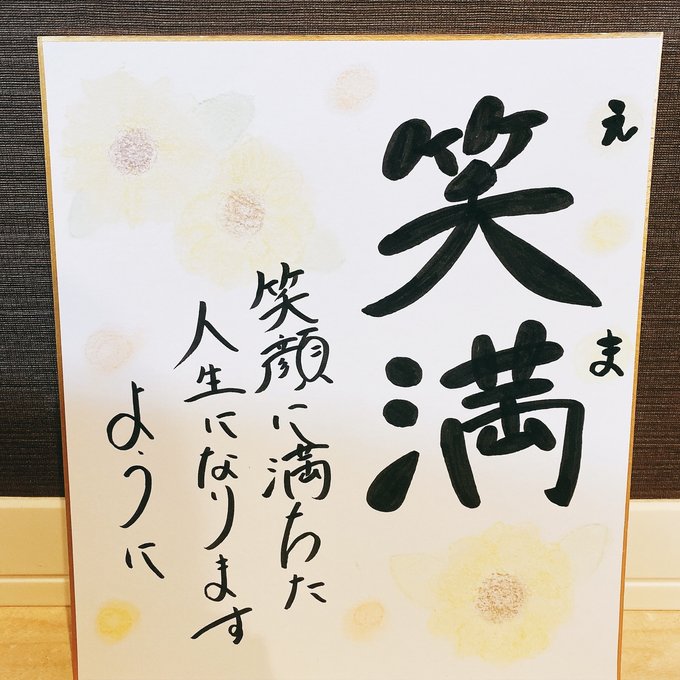 えま
笑満
笑顔に満ちた
人生になります
ように